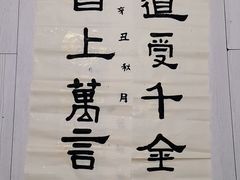 道受千金
辛丑秋月
百上萬言